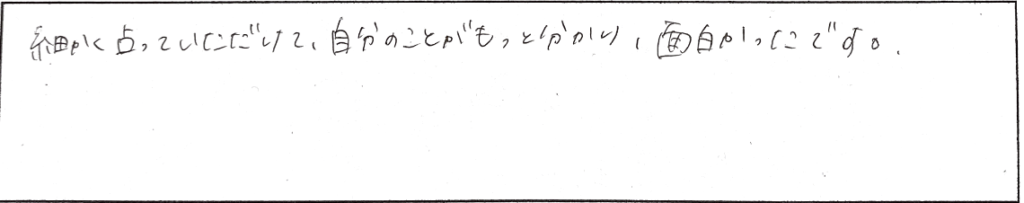 細かく占っていただけて、自分のことがもっと分かり、面白かったです。